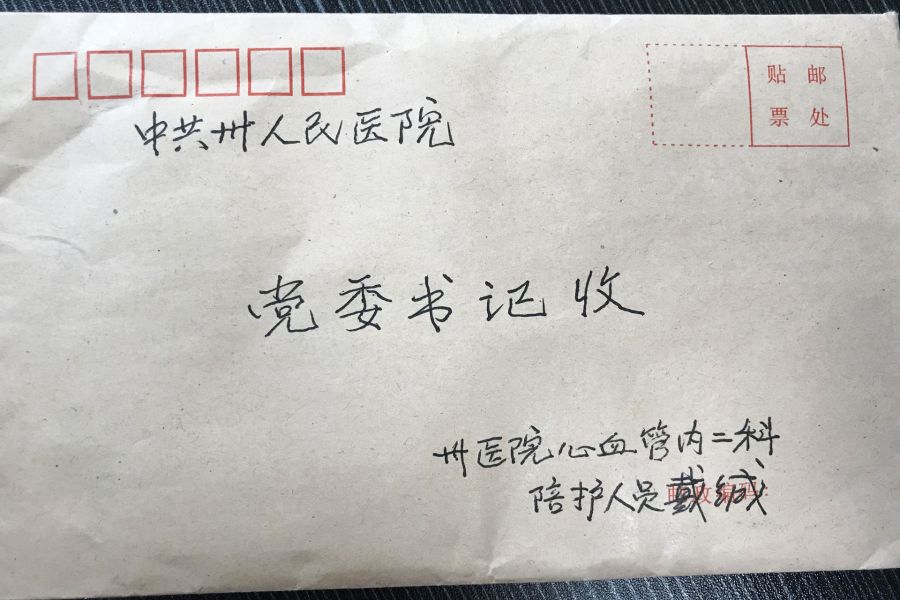 贴 邮
票 处
中共卅人民医院
党委书记收
卅医院心血管内二科
陪护人员戴缄
邮政编码: